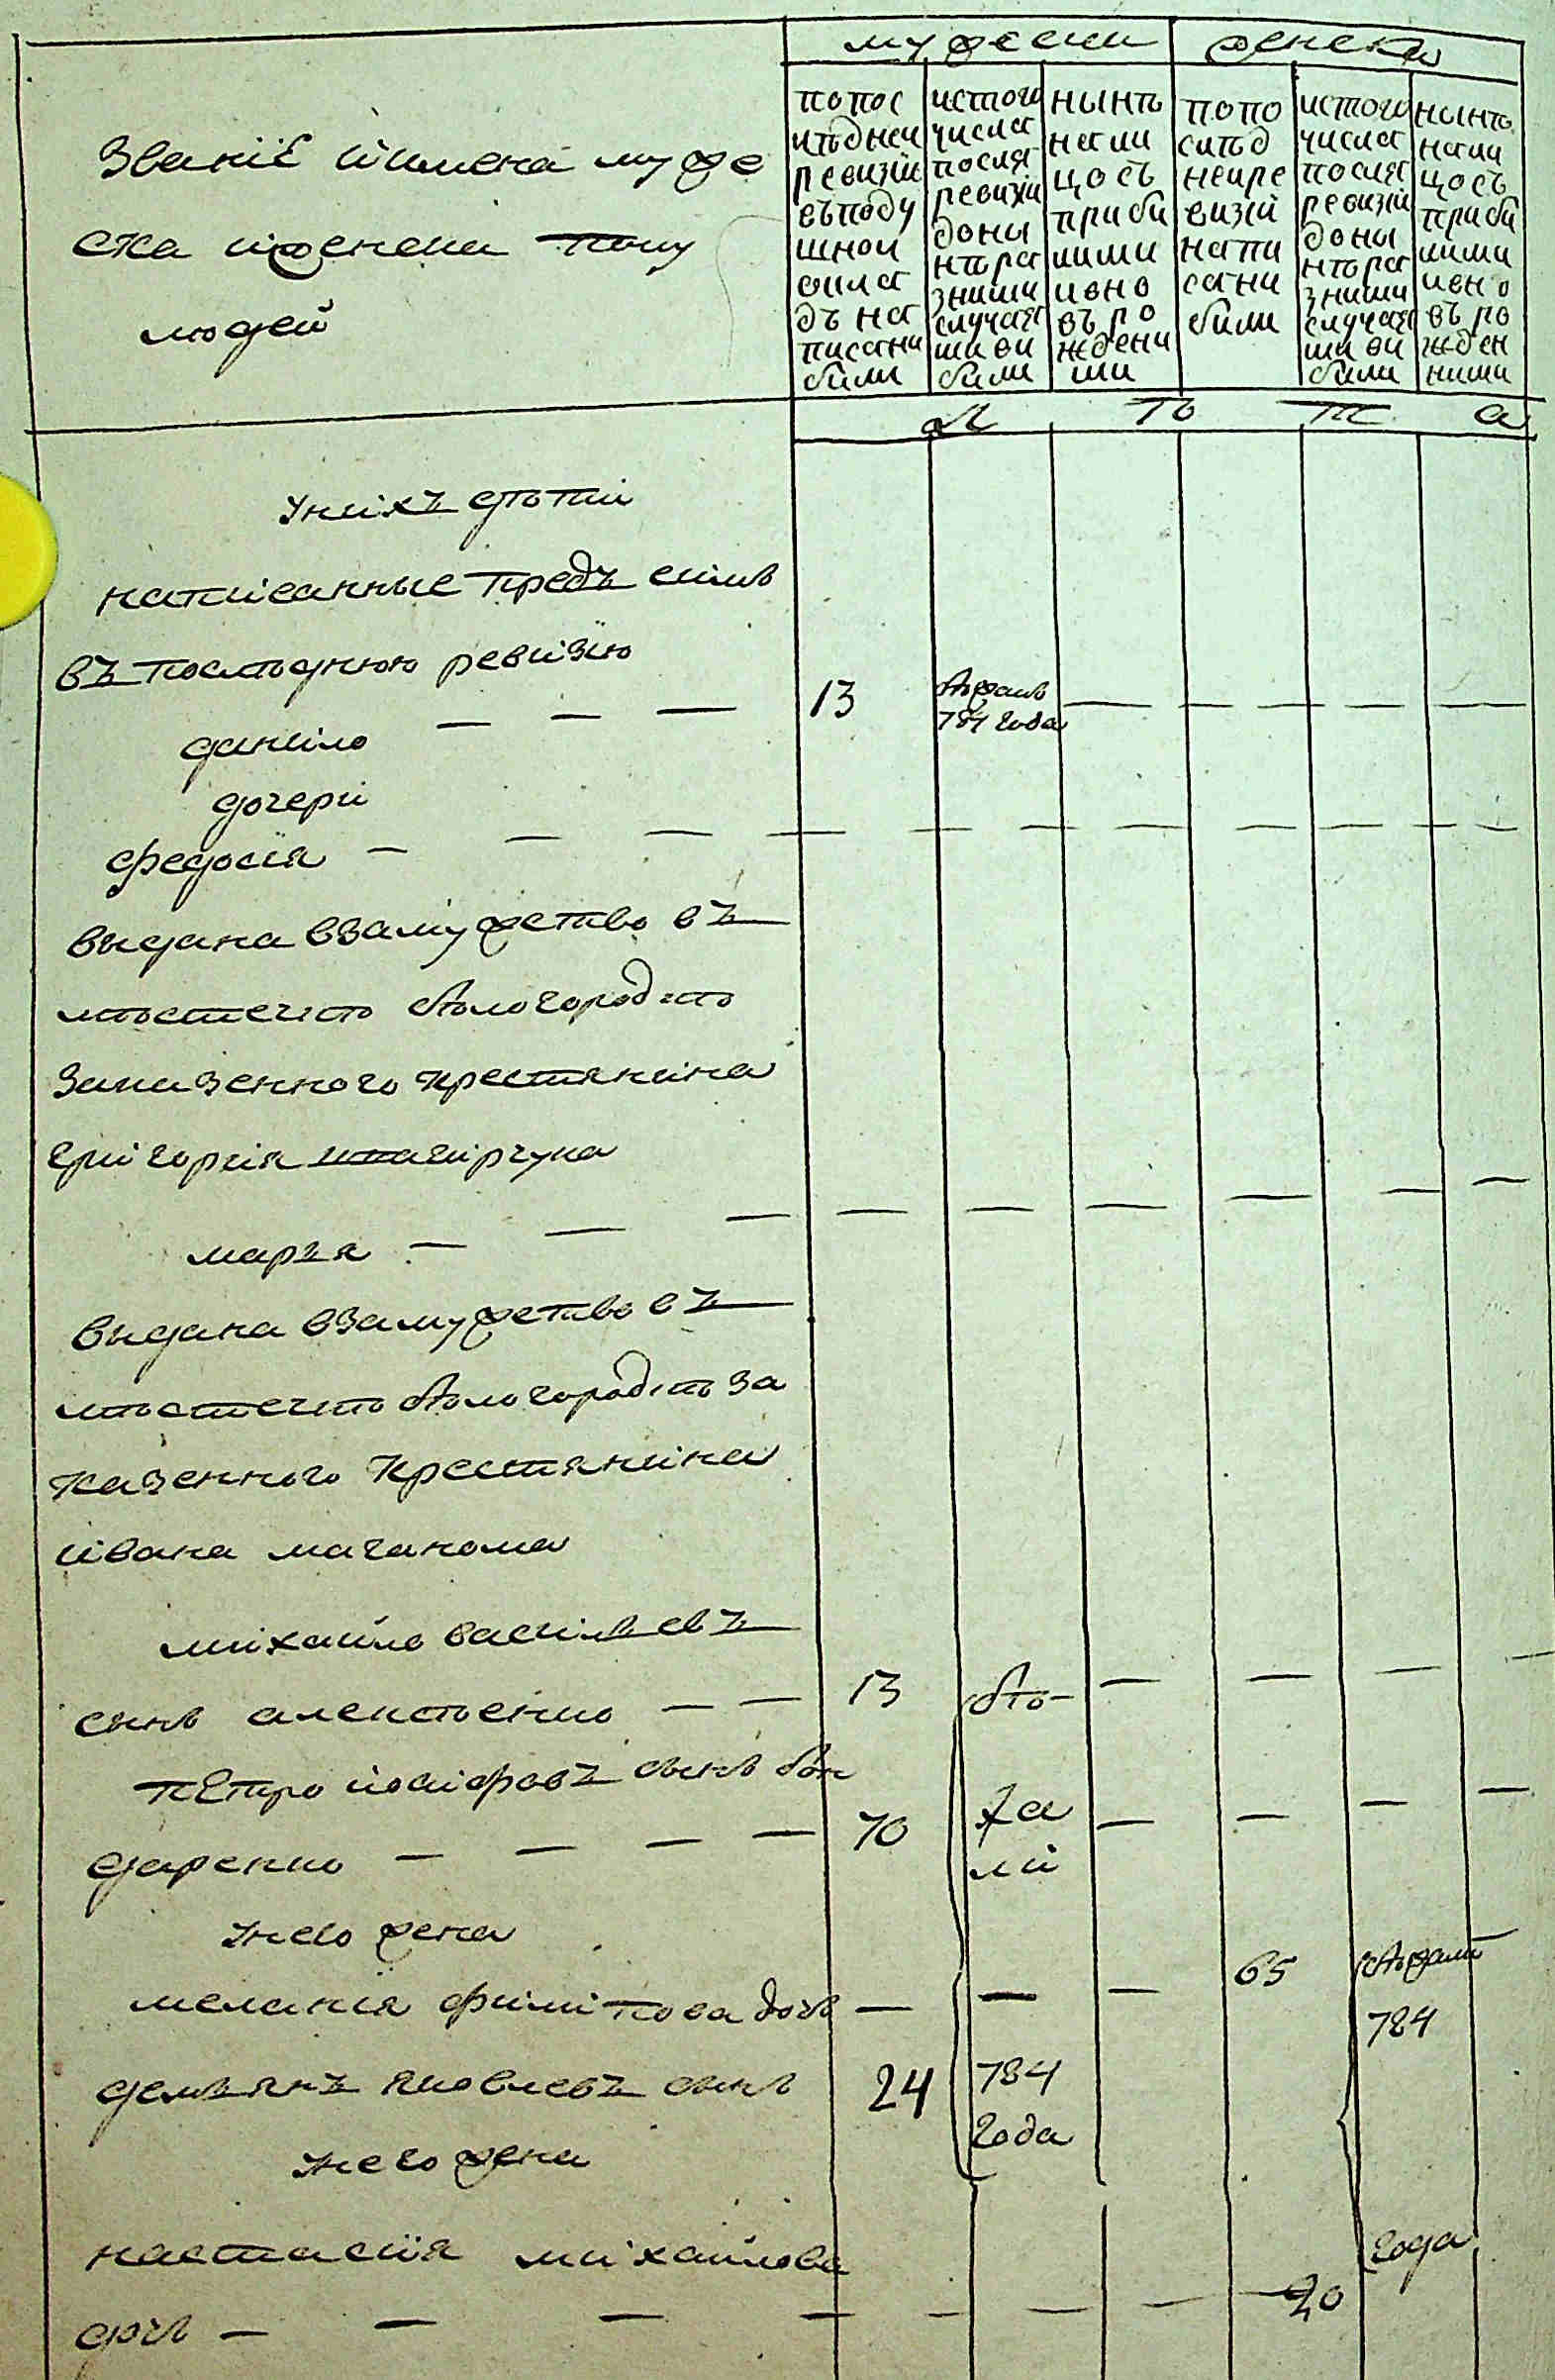 мужески женски
званіе и имена муже
ска и женска полу
людей
попос
лѣдней
ревизіи
въподу
шной
окла
дъ на
писани
были
истого
числа
после
ревизіи
доны
нѣра
зними
случая
ми ви
были
нынѣ
нали
цось
приби
лими
ивно
въ ро
ждени
ми
попо
слѣд
ней ре
визіи
напи
сани
были
истого
числа
после
ревизіи
доны
нѣра
зними
случая
ми ви
были
нынѣ
нали
цось
приби
лими
ивно
въ ро
жден
ними
л ѣ т а
унихъ дѣти
написанные предъ симъ
въ последнюю ревизію
данило — — — 13 бѣжалъ — — — —
784 года
дочери
федосія — — — — — — — — — —
выдана взамужство въ
мѣстечко бѣлогородко
заказенного крестянина
григорія
марья — — — — — — — — —
выдана взамужство въ
мѣстечко бѣлогородкѣ за
казенного крестянина
ивана
михайло васильевъ
сынъ алексѣенко — — 13 бѣ— — — — —
петро иосіфовъ сынъ бон
даренко — — — — 70 жа — — — —
ли
унего жена
меланія филіпова дочь — — — 65 бѣжали
784
демьянъ яковлевъ сынъ 24 784
года
унего жена
настасія михайлова
года
дочь — — — — — — — 20